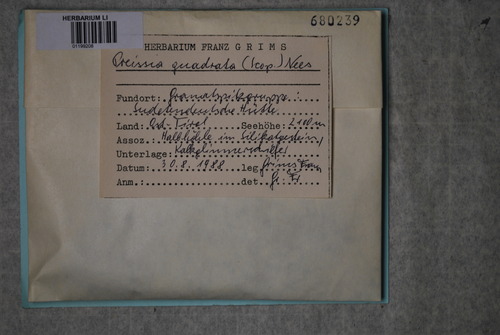 HERBARIUM LI
01199206
680239
HERBARIUM FRANZ GRIMS
Preissia quadrata (Scop.) Nees
Fundort: Granatspitzgruppe:
Sudetendeutsche Hütte
Land: Ost-Tirol Seehöhe: 2100m
Assoz.: Halbhöhle in Silikatgestein,
Unterlage: Kalkglimmerschiefer
Datum: 30.8.1988 leg. Grims Franz
Anm.: det. Gr. Fr.